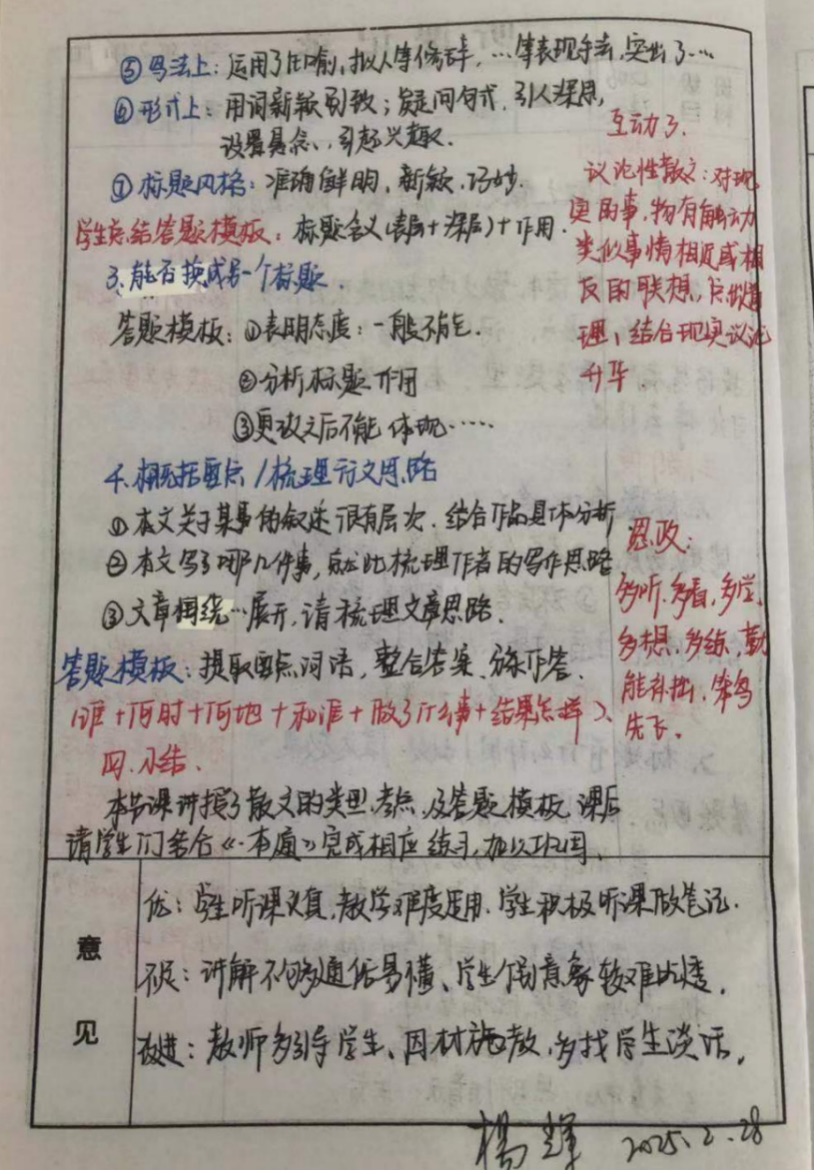 ⑤写法上：运用了比喻，拟人等修辞，…等表现手法，突出了…
⑥形式上：用词新颖别致；疑问句式，引人深思，
设置悬念，引起兴趣．
⑦标题风格：准确鲜明、新颖、巧妙．
学生总结答题模板：标题含义（表层+深层）+作用．
3、能否换成另一个标题．
答题模板：①表明态度：一般不能．
②分析标题作用
③更改之后不能体现……
4、概括要点/梳理行文思路
①本文关于某事的叙述很有层次，结合作品具体分析
②本文写了哪几件事，就此梳理作者的写作思路
③文章围绕…展开，请梳理文章思路．
答题模板：提取要点词语，整合答案、分条作答．
（谁+何时+何地+和谁+做了什么事+结果怎样）、
四、小结、
本节课讲授了散文的类型、考点、及答题模板，课后
请学生们结合《一本通》完成相应练习，加以巩固、
互动3．
议论性散文：对现
实的事，物有触动
类似事情相近或相
反的联想，
理，结合现实议论
升华．
思政：
多听，多看，多学、
多想、多练，勤
能补拙，笨鸟
先飞．
意见
优：学生听课认真，教学难度适用．学生积极听课做笔记．
不足：讲解不够通俗易懂、学生倒意象较难
改进：教师多引导学生、因材施教，多找学生谈话，
楊輝 2025.2.28